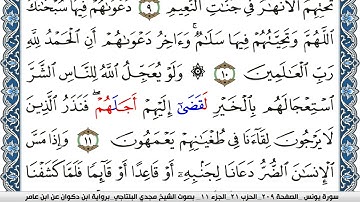 تَحْتِهِمُ ٱلْأَنْهَٰرُ فِي جَنَّٰتِ ٱلنَّعِيمِ ٩ دَعْوَىٰهُمْ فِيهَا سُبْحَٰنَكَ
ٱللَّهُمَّ وَتَحِيَّتُهُمْ فِيهَا سَلَٰمٌۚ وَءَاخِرُ دَعْوَىٰهُمْ أَنِ ٱلْحَمْدُ لِلَّهِ
رَبِّ ٱلْعَٰلَمِينَ ١٠ ۞ وَلَوْ يُعَجِّلُ ٱللَّهُ لِلنَّاسِ ٱلشَّرَّ
ٱسْتِعْجَالَهُم بِٱلْخَيْرِ لَقَضَىٰٓ إِلَيْهِمْ أَجَلَهُمْۖ فَنَذَرُ ٱلَّذِينَ
لَا يَرْجُونَ لِقَآءَنَا فِي طُغْيَٰنِهِمْ يَعْمَهُونَ ١١ وَإِذَا مَسَّ
ٱلْإِنسَٰنَ ٱلضُّرُّ دَعَانَا لِجَنۢبِهِۦٓ أَوْ قَاعِدًا أَوْ قَآئِمًا فَلَمَّا كَشَفْنَا
سورة يونس _الصفحة ٢٠٩_ الحزب ٢١_ الجزء ١١ _ بصوت الشيخ مجدي البلتاجي _ برواية ابن ذكوان عن ابن عامر